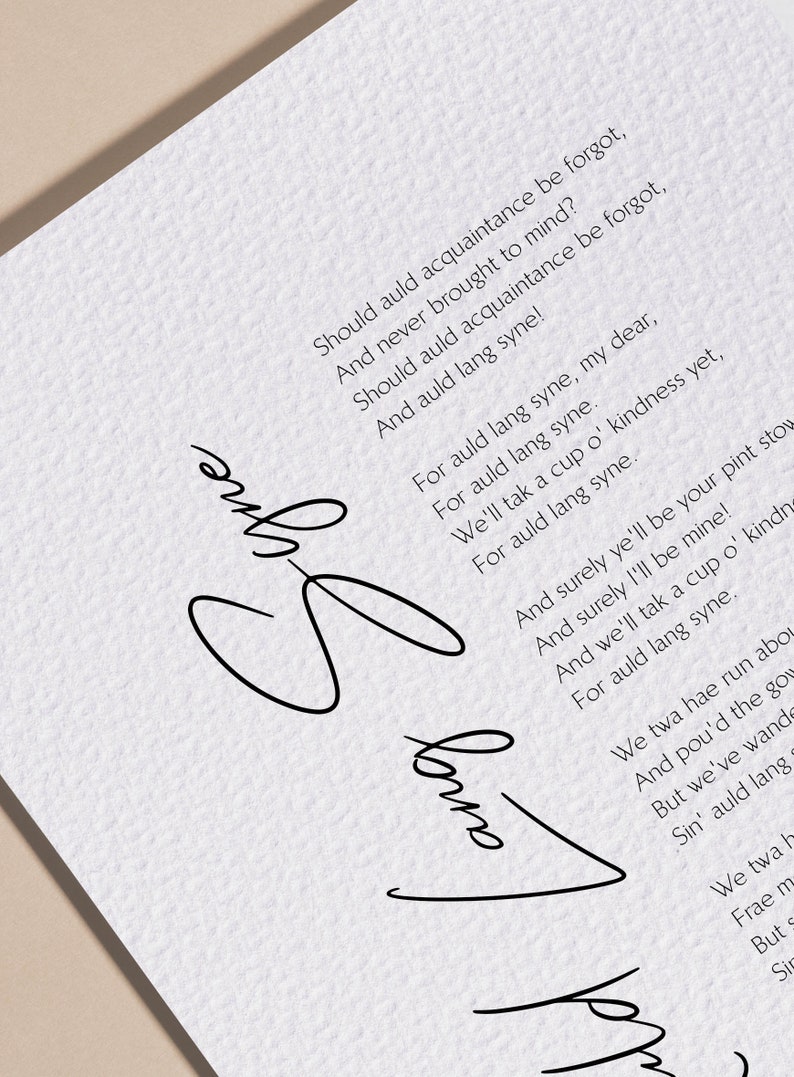 Should auld acquaintance be forgot,
And never brought to mind?
Should auld acquaintance be forgot,
And auld lang syne!
For auld lang syne, my dear,
For auld lang syne.
We'll tak a cup o' kindness yet,
For auld lang syne.
And surely ye'll be your pint stow
And surely I'll be mine!
And we'll tak a cup o' kindn
For auld lang syne.
We twa hae run abou
And pou'd the gow
But we've wande
Sin' auld lang s
We twa h
Frae m
But s
Sin
Lang Syne